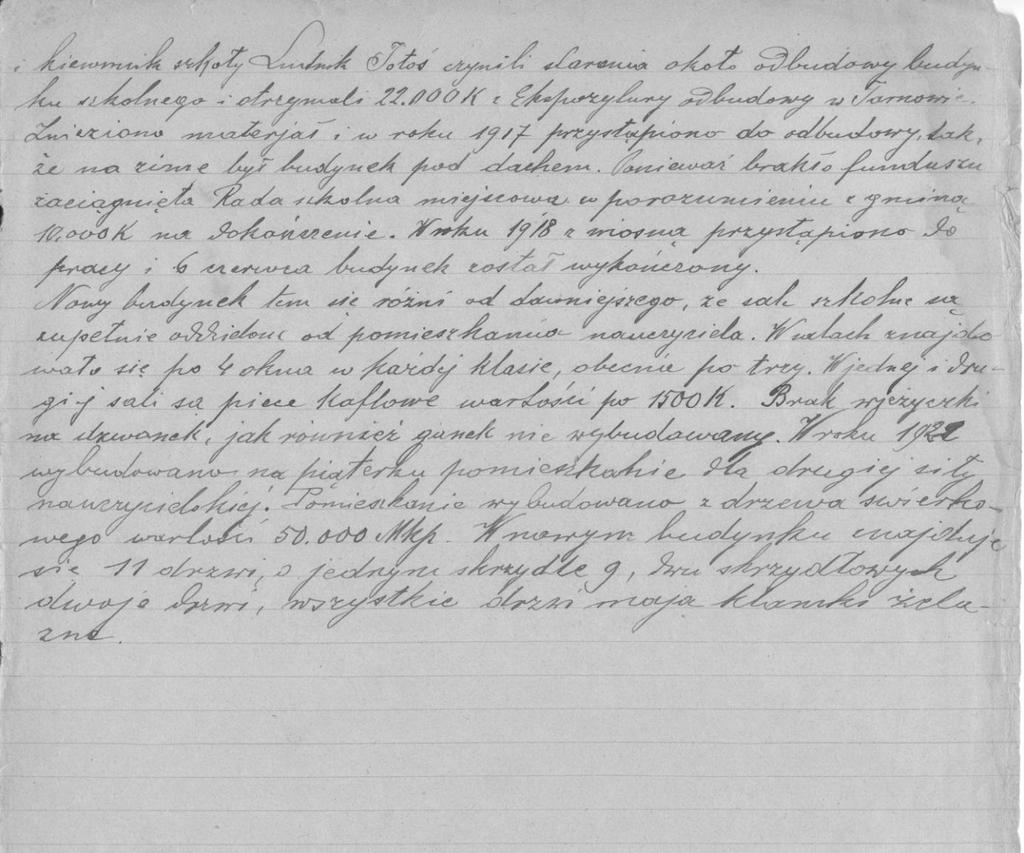 i kierownik szkoły Ludwik Totoś czynili starania około odbudowy budyn-
ku szkolnego i otrzymali 22.000 K z Ekspozytury odbudowy w Tarnowie.
Zwieziono materjał i w roku 1917 przystąpiono do odbudowy, tak,
że na zimę był budynek pod dachem. Ponieważ brakło funduszu
zaciągnęła Rada szkolna miejscowa w porozumieniu z gminą
10.000 K na dokończenie. W roku 1918 z wiosną przystąpiono do
pracy i 6 czerwca budynek został wykończony.
Nowy budynek tem się różni od dawniejszego, że sale szkolne są
zupełnie oddzielone od pomieszkania nauczyciela. W salach znajdo
wało się po 4 okna w każdej klasie, obecnie po trzy. W jednej i dru-
giej sali są piece kaflowe wartości po 1500 K. Brak wieżyczki
na dzwonek, jak również ganek nie wybudowany. W roku 1922
wybudowano na piąterku pomieszkanie dla drugiej siły
nauczycielskiej. Pomieszkanie wybudowano z drzewa świerko-
wego wartości 50.000 Mkp. W nowym budynku znajduje
się 11 drzwi, o jednym skrzydle 9, dwu skrzydłowych
dwoje drzwi, wszystkie drzwi mają klamki żela-
zne.